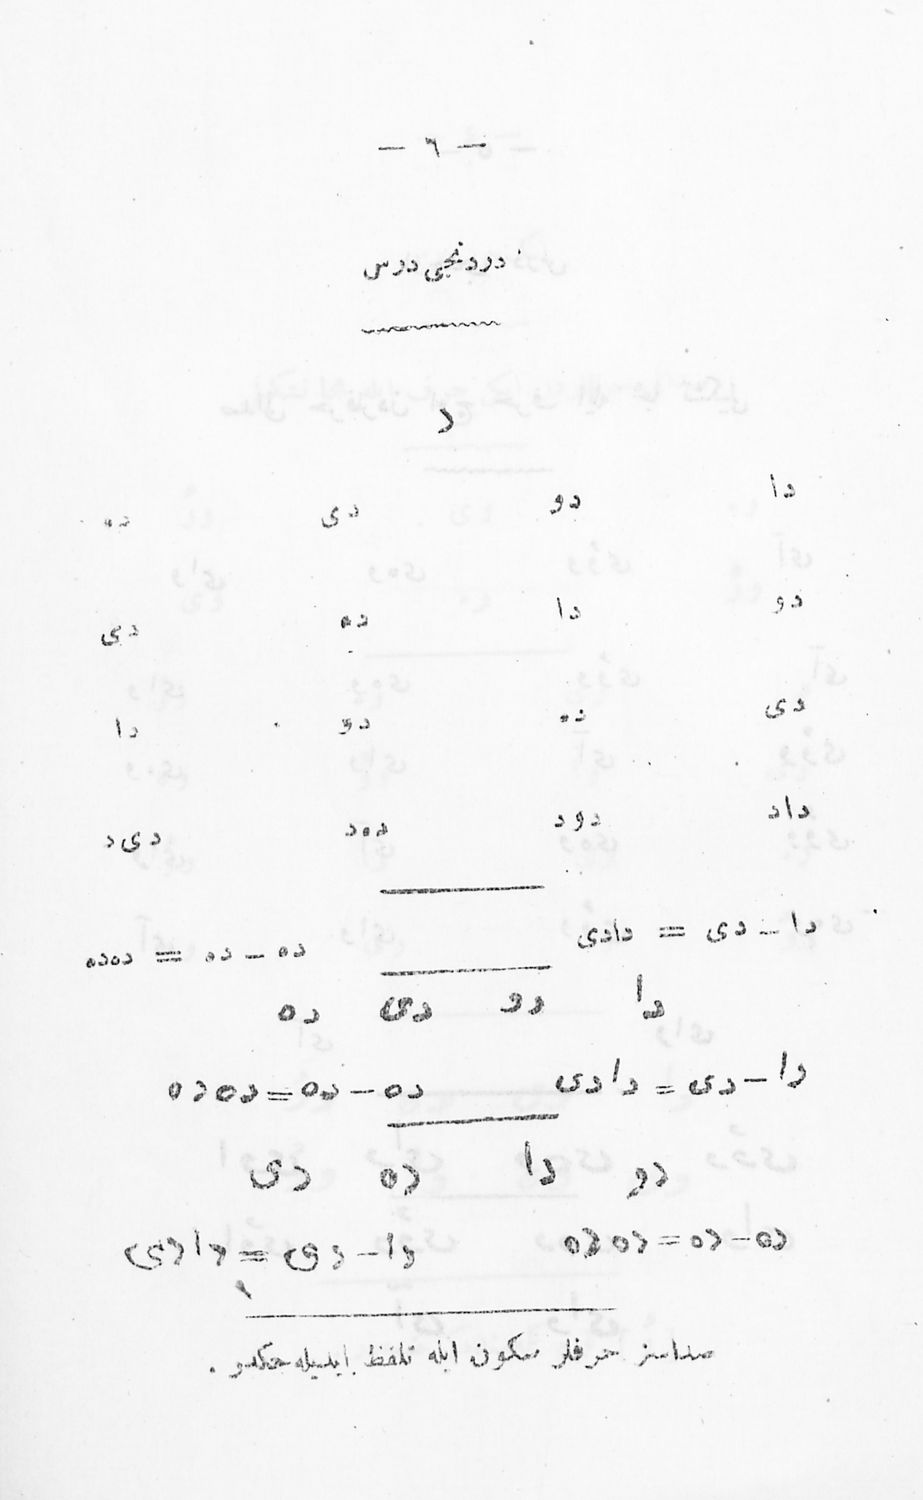 — ٦ —
دردنجی درس
د
دا دو دی ده
دو دا ده دی
دی ده دو دا
داد دود دەد دید
دا – دی = دادی ده – ده = دەده
دا دو دی ده
دا – دی = دادی ده – ده = دەده
دو دا ده دی
ده – ده = دەده دا – دی = دادی
صداسز حرفلر سکون ایله تلفظ ایدیله‌جکدر .